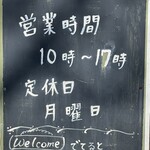 営業時間
10時〜17時
定休日
月曜日
Welcome でてると